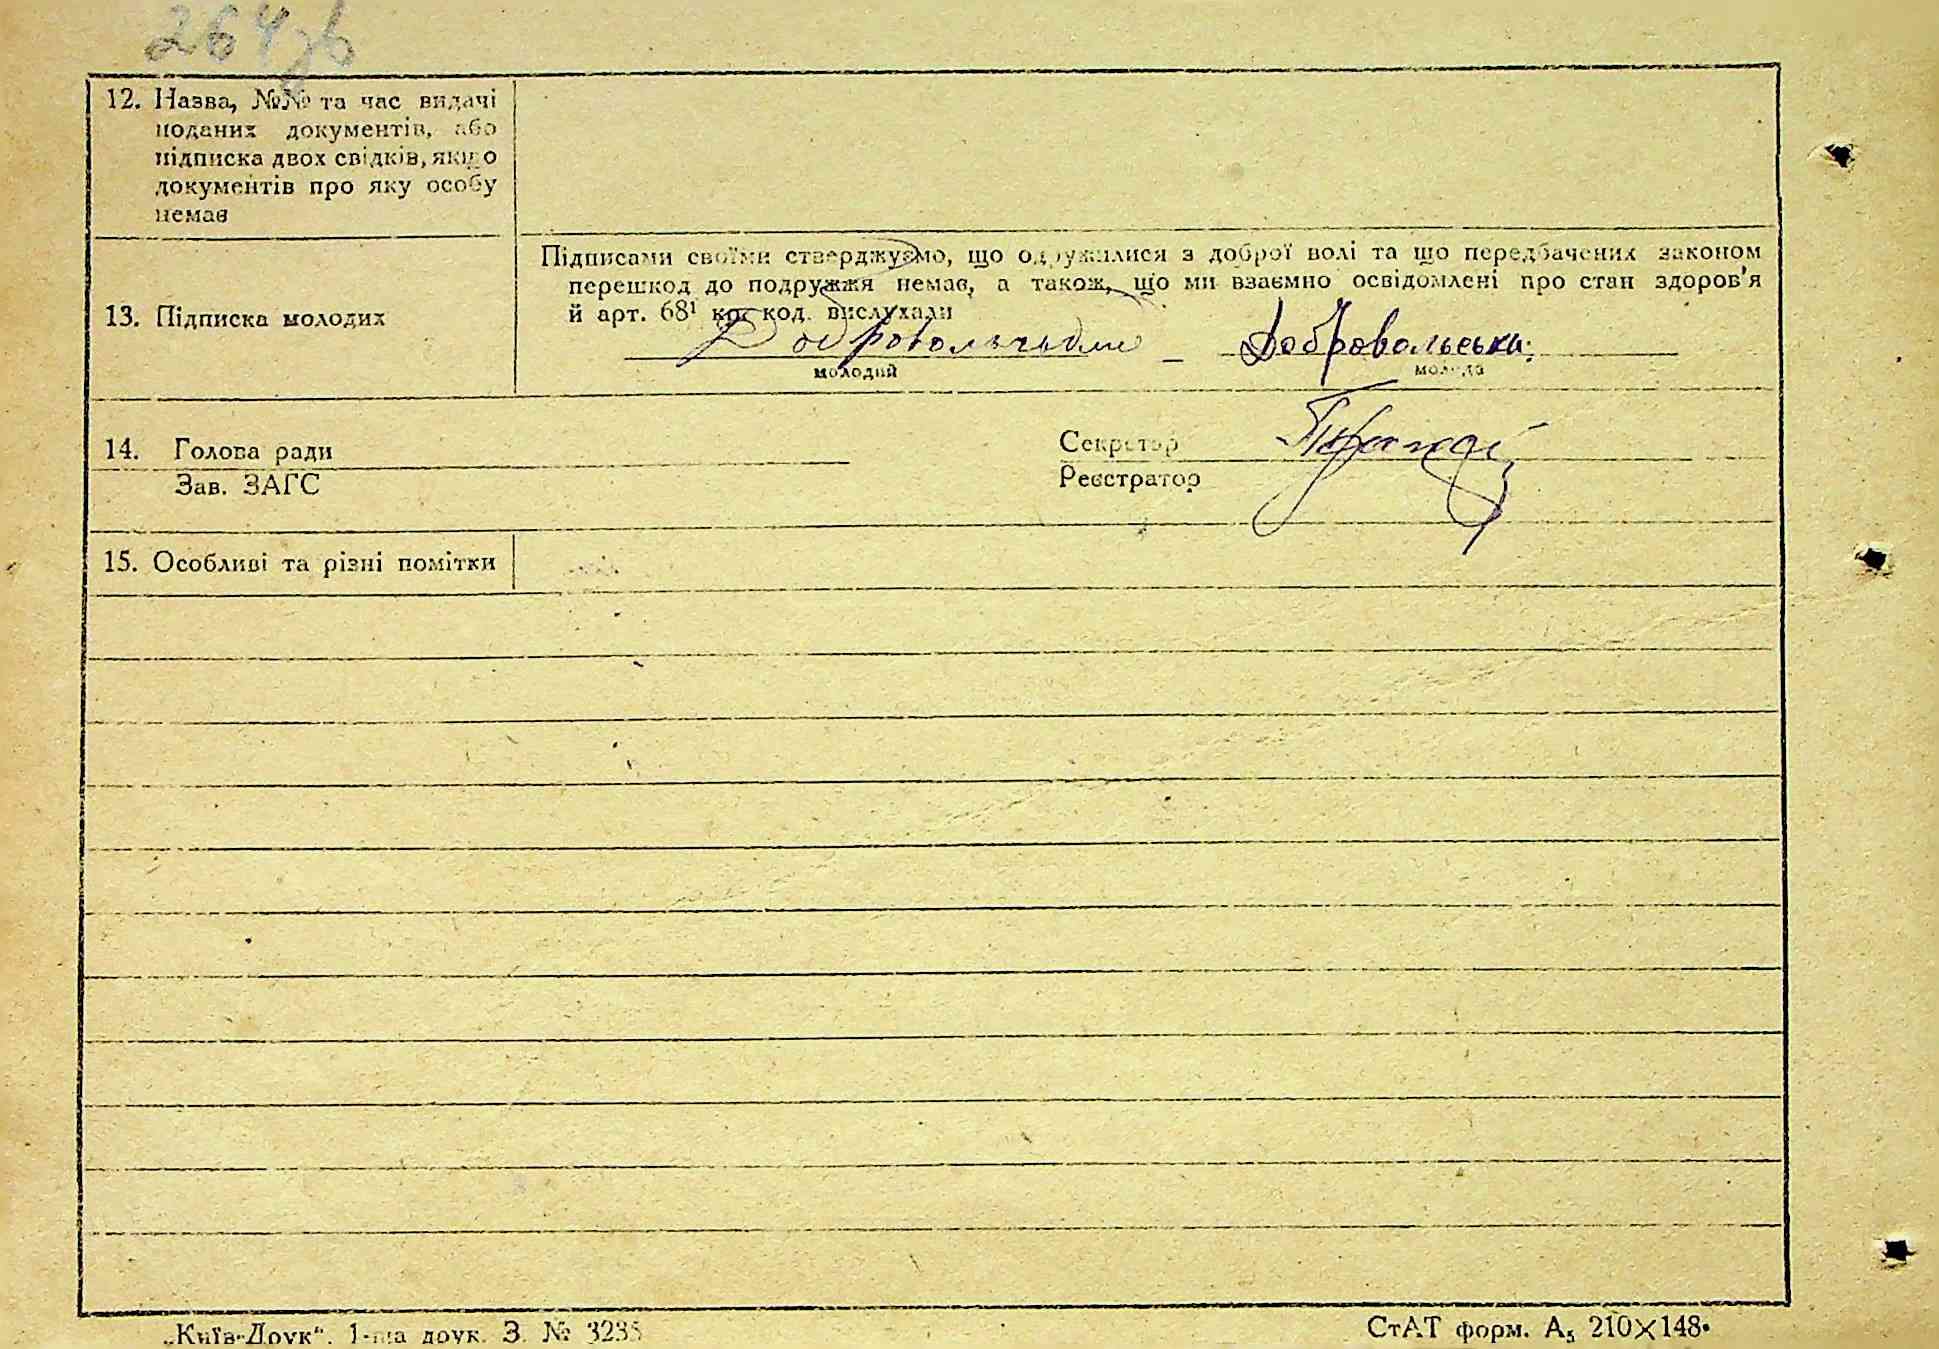 264зв
12. Назва, №№ та час видачі
поданих документів, або
підписка двох свідків, якщо
документів про яку особу
немає
13. Підписка молодих
Підписами своїми стверджуємо, що одружилися з доброї волі та що передбачених законом
перешкод до подружжя немає, а також, що ми взаємно освідомлені про стан здоров'я
й арт. 68¹ кр. код. вислухали
Добровольський – Добровольська
молодий молода
14. Голова ради Секретар
Зав. ЗАГС Реєстратор
15. Особливі та різні помітки
„Київ-Друк“. 1-ша друк. З. № 3235
СтАТ форм. А₅ 210×148•